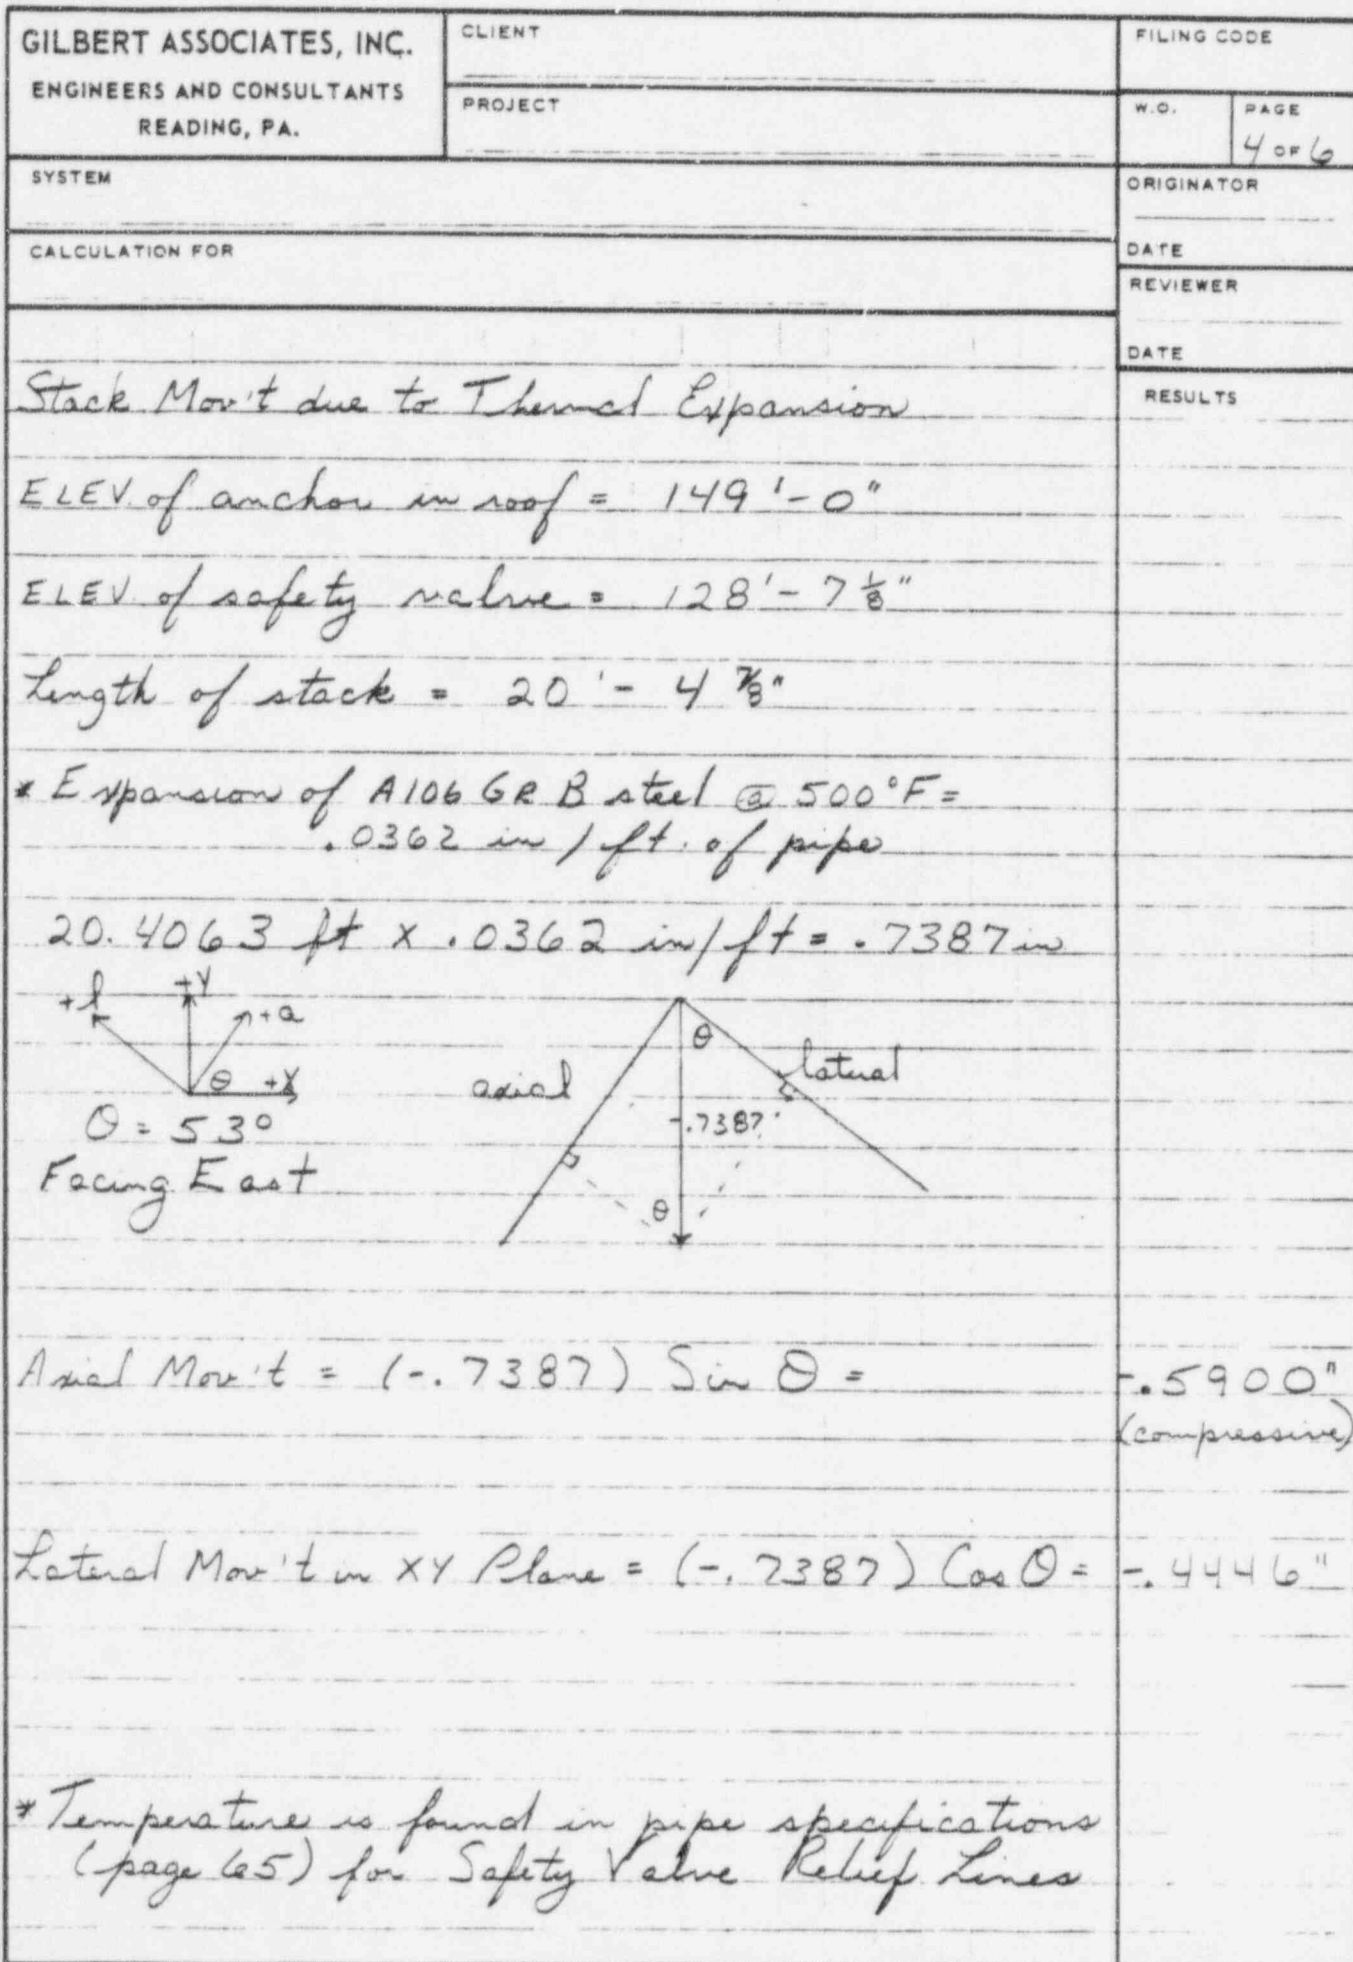 GILBERT ASSOCIATES, INC.
ENGINEERS AND CONSULTANTS
READING, PA.
CLIENT
PROJECT
FILING CODE
W.O.
PAGE
4 OF 6
SYSTEM
ORIGINATOR
CALCULATION FOR
DATE
REVIEWER
DATE
RESULTS
Stack Mov't due to Thermal Expansion
ELEV. of anchor in roof = 149'-0"
ELEV. of safety valve = 128'-7 1/8"
Length of stack = 20'-4 7/8"
* Expansion of A106 GR B steel @ 500°F =
.0362 in / ft. of pipe
20.4063 ft x .0362 in/ft = .7387 in
+l +Y +a
θ +X
θ = 53°
Facing East
axial
θ
lateral
-.7387
θ
Axial Mov't = (-.7387) Sin θ = -.5900"
(compressive)
Lateral Mov't in XY Plane = (-.7387) Cos θ = -.4446"
* Temperature is found in pipe specifications
(page 65) for Safety Valve Relief Lines